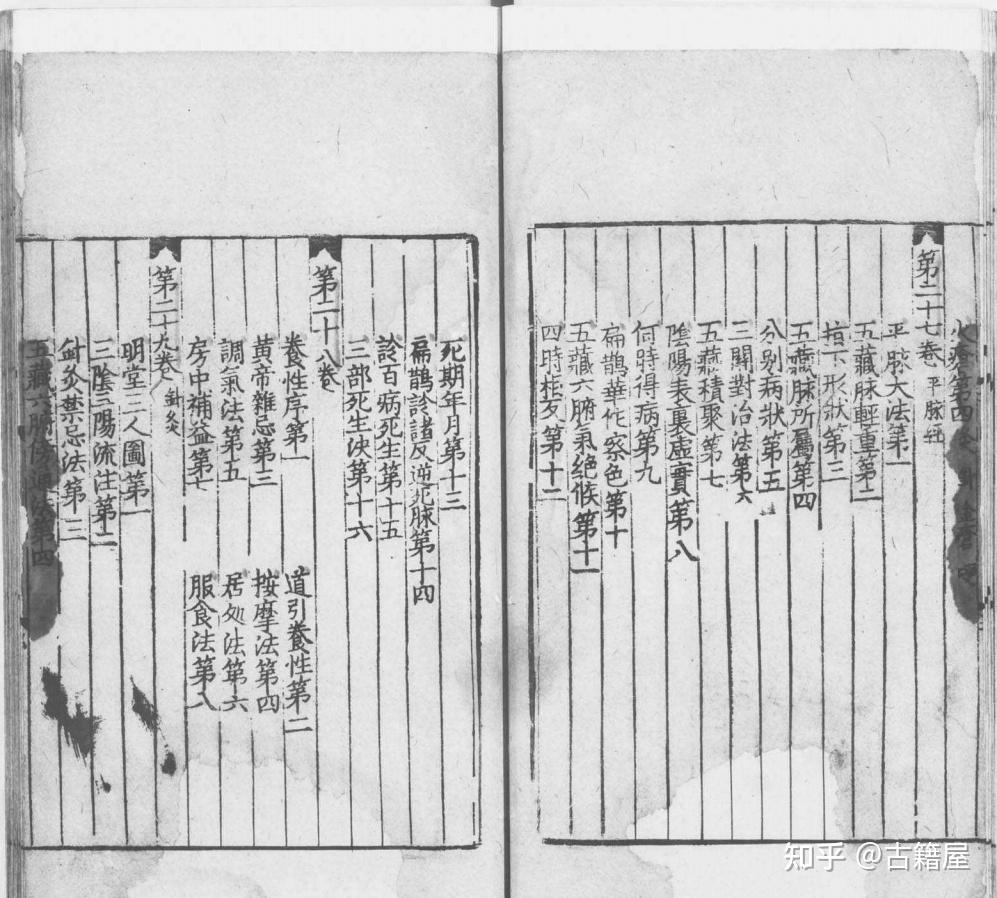 第四
第二十七卷 平脉經
平脉大法第一
五藏脉輕重第二
指下形狀第三
五藏脉所屬第四
分別病狀第五
三關對治法第六
五藏積聚第七
陰陽表裏虛實第八
何時得病第九
扁鵲華佗察色第十
五藏六腑氣絶候第十一
四時相反第十二
死期年月第十三
扁鵲診諸反逆死脉第十四
診百病死生第十五
三部死生決第十六
第二十八卷
養性序第一 道引養性第二
黃帝雜忌第三 按摩法第四
調氣法第五 居処法第六
房中補益第七 服食法第八
第二十九卷 針灸
明堂三人圖第一
三陰三陽流注第二
針灸禁忌法第三
五藏六腑傍通候第四
知乎 @古籍屋